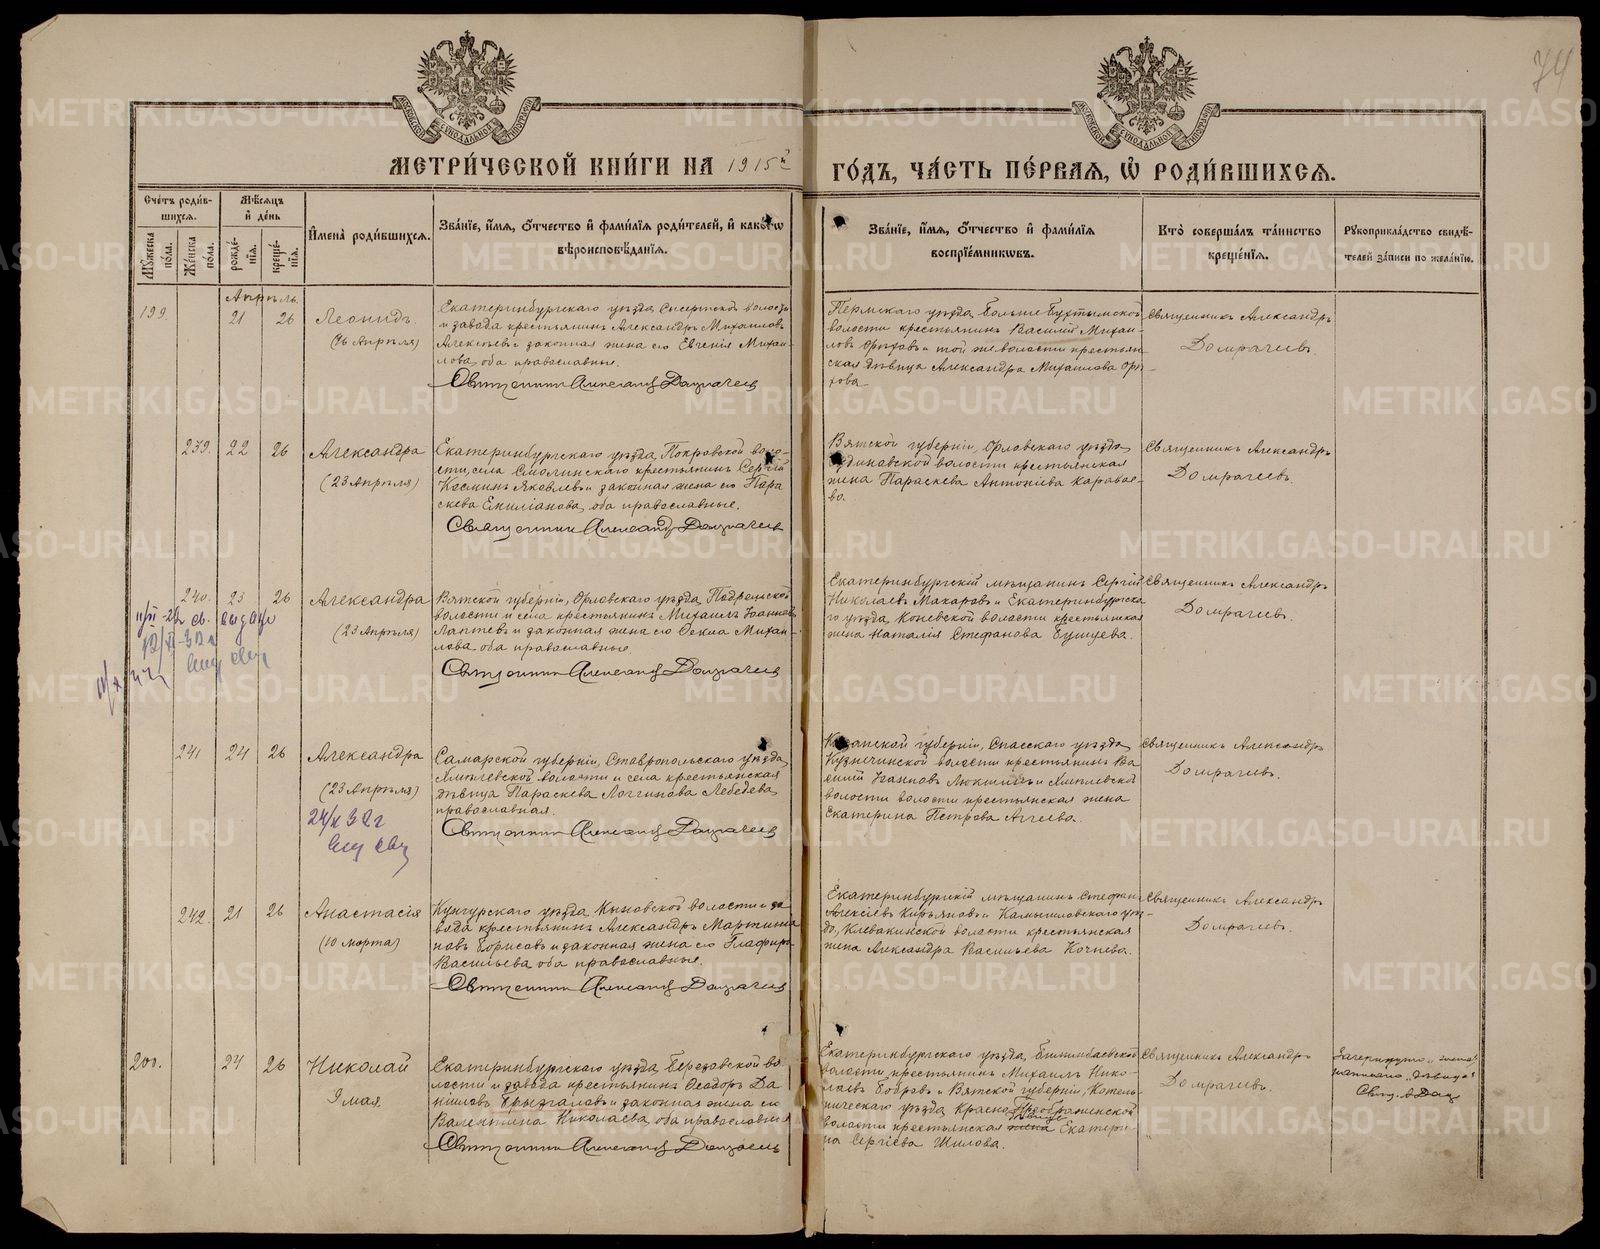 74
МЕТРИ́ЧЕСКОЙ КНИ́ГИ НА 1915 ГО́ДЪ, ЧА́СТЬ ПЕ́РВАѦ, Ѡ҆ РОДИ́ВШИХСѦ.
Сче́тъ роди́в-
шихсѧ.
Мѣ́сѧцъ
и҆ де́нь
Мꙋ́жеска
по́ла.
Же́нска
по́ла.
рожде́-
нїѧ.
креще́-
нїѧ.
И҆мена̀ роди́вшихсѧ.
Зва́нїе, и҆́мѧ, ѻ҆́тчество и҆ фами́лїѧ роди́телей, и҆ како́гѡ
вѣроисповѣ́данїѧ.
Зва́нїе, и҆́мѧ, ѻ҆́тчество и҆ фами́лїѧ
воспрїе́мникѡвъ.
Кто̀ соверша́лъ та́инство
креще́нїѧ.
Рꙋкоприкла́дство свидѣ́-
телей за́писи по жела́нїю.
Апрѣль.
199.
21
26
Леонидъ.
(16 Апрѣля)
Екатеринбургскаго уѣзда Сысертской волости
и завода крестьянинъ Александръ Михаиловъ
Алексѣевъ и законная жена его Евгенія Михаи-
лова, оба православные.
Священникъ Александръ Домрачевъ
Пермскаго уѣзда
волости крестьянинъ Василій Михаи-
ловъ Орѣховъ и той же волости крестьян-
ская дѣвица Александра Михаилова Орѣ-
хова.
Священникъ Александръ
Домрачевъ
239.
22
26
Александра
(23 Апрѣля)
Екатеринбургскаго уѣзда, Покровской воло-
сти, села Смолинскаго крестьянинъ Сергій
Косминъ Яковлевъ и законная жена его Пара
скева Емиліанова, оба православные.
Священникъ Александръ Домрачевъ
Вятской губерніи, Орловскаго уѣзда,
волости крестьянская
жена Параскева Антоніева Каравае-
ва.
Священникъ Александръ
Домрачевъ.
240.
23
26
Александра
(23 Апрѣля)
Вятской губерніи, Орловскаго уѣзда, Подрельской
волости и села крестьянинъ Михаилъ Іоанновъ
Лаптевъ и законная жена его Ѳекла Михаи-
лова, оба православные.
Священникъ Александръ Домрачевъ
Екатеринбургскій мѣщанинъ Сергій
Николаевъ Макаровъ и Екатеринбургска
го уѣзда Коневской волости крестьянская
жена Наталія Стефанова Бушуева.
Священникъ Александръ
Домрачевъ.
241
24
26
Александра
(23 Апрѣля)
Самарской губерніи, Ставропольскаго уѣзда,
Хмелевской волости и села крестьянская
дѣвица Параскева Логгинова Лебедева,
православная.
Священникъ Александръ Домрачевъ
Казанской губерніи, Спасскаго уѣзда,
Кузнечихинской волости крестьянинъ Ва
силій Іоанновъ Люкшинъ и Хмелевской
волости волости крестьянская жена
Екатерина Петрова Агѣева.
Священникъ Александръ
Домрачевъ.
242.
21
26
Анастасія
(10 марта)
Кунгурскаго уѣзда Кыновской волости и за
вода крестьянинъ Александръ Мартиніа
новъ Борисовъ и законная жена его Глафира
Васильева, оба православные.
Священникъ Александръ Домрачевъ
Екатеринбургскій мѣщанинъ Стефанъ
Алексіевъ Кирьяновъ и Камышловскаго уѣз-
да, Клевакинской волости крестьянская
жена Александра Васильева Кочнева.
Священникъ Александръ
Домрачевъ.
200.
24
26
Николай
9 мая.
Екатеринбургскаго уѣзда, Березовской во
лости и завода крестьянинъ Ѳеодоръ Да
ніиловъ Брызгаловъ и законная жена его
Валентина Николаева, оба православные
Священникъ Александръ Домрачевъ
Екатеринбургскаго уѣзда, Билимбаевской
волости крестьянинъ Михаилъ Нико-
лаевъ Бобровъ и Вятской губерніи, Котель-
ническаго уѣзда Красно-Преображенской
дѣвица
волости крестьянская жена Екатери-
на Сергіева Шилова.
Священникъ Александръ
Домрачевъ.
Зачеркнуто „жена“
написано „дѣвица“
Свящ. А Дом